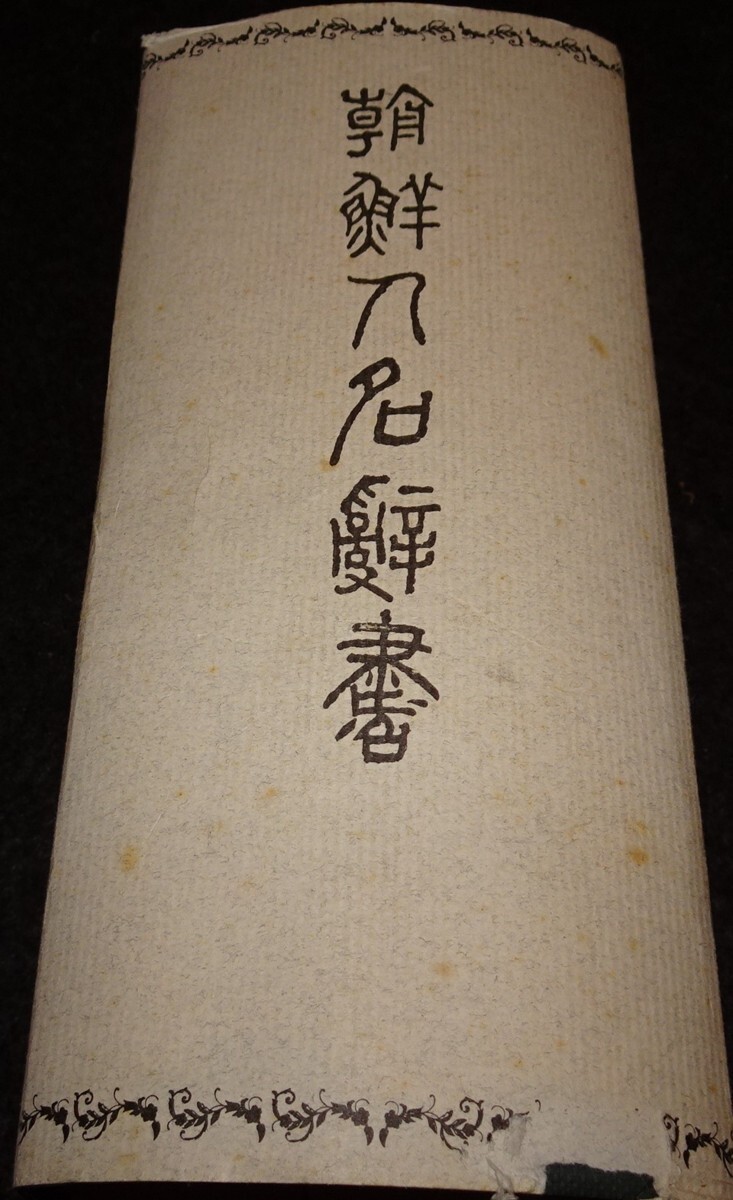 朝鮮人名辭書